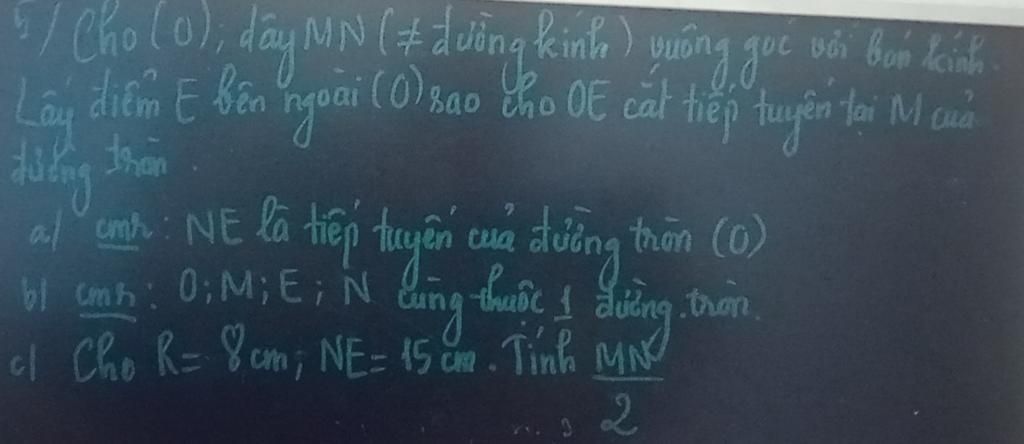 5/ Cho (O); dây MN (≠ đường kính) vuông góc với bán kính
Lấy điểm E bên ngoài (O) sao cho OE cắt tiếp tuyến tại M của
đường tròn.
a/ cmr: NE là tiếp tuyến của đường tròn (O)
b/ cmr: O; M; E; N cùng thuộc 1 đường tròn.
c/ Cho R = 8 cm; NE = 15 cm. Tính MN/2